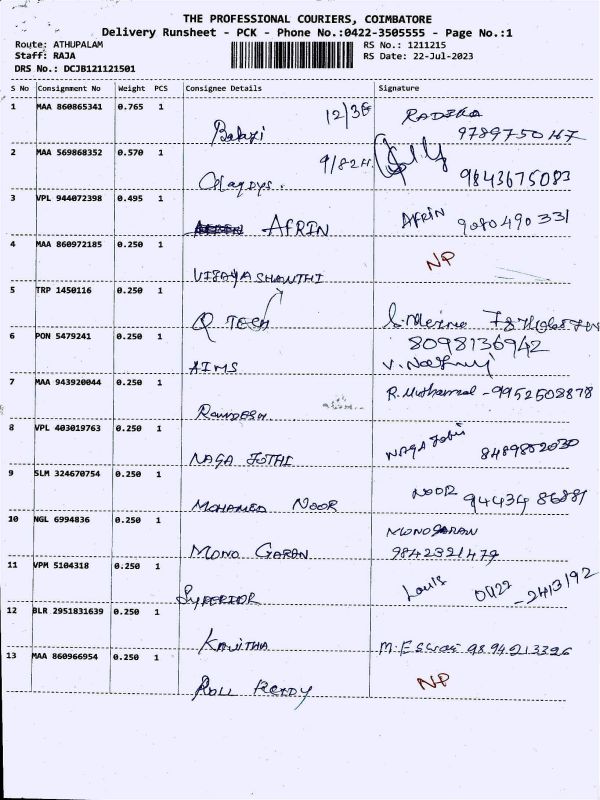 THE PROFESSIONAL COURIERS, COIMBATORE
Delivery Runsheet - PCK - Phone No.:0422-3505555 - Page No.:1
Route: ATHUPALAM RS No.: 1211215
Staff: RAJA RS Date: 22-Jul-2023
DRS No.: DCJB121121501
S No Consignment No Weight PCS Consignee Details Signature
1 MAA 860865341 0.765 1 12/38 RADIKA
Balaji 9789750167
2 MAA 569868352 0.570 1 9/82H
9843675083
3 VPL 944072398 0.495 1
AFRIN AFRIN 9080490331
4 MAA 860972185 0.250 1 NP
VIJAYA SHANTHI
5 TRP 1450116 0.250 1
Q TECH
6 PON 5479241 0.250 1 8098136942
AIMS
7 MAA 943920044 0.250 1 R. Muthammal - 9952508878
8 VPL 403019763 0.250 1 NAGA Jothi
NAGA JOTHI 8489852030
9 SLM 324670754 0.250 1 NOOR 94434 86881
MOHAMED NOOR
10 NGL 6994836 0.250 1 MONOGARAN
MONO GARAN 9842321479
11 VPM 5104318 0.250 1 Louis 0422 - 2413192
SUPERIOR
12 BLR 2951831639 0.250 1
KAVITHA M. Eswari 9894213326
13 MAA 860966954 0.250 1 NP
ROLL READY